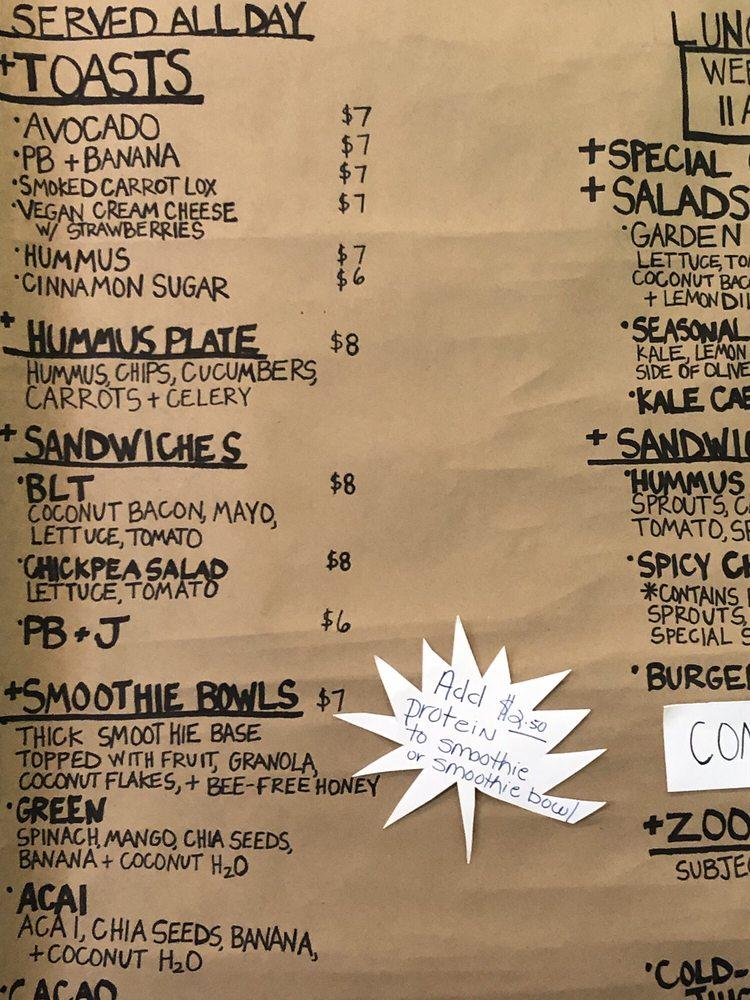 SERVED ALL DAY
+TOASTS
·AVOCADO $7
·PB + BANANA $7
·SMOKED CARROT LOX $7
·VEGAN CREAM CHEESE $7
W/ STRAWBERRIES
·HUMMUS $7
·CINNAMON SUGAR $6
+ HUMMUS PLATE $8
HUMMUS, CHIPS, CUCUMBERS,
CARROTS + CELERY
+ SANDWICHES
·BLT $8
COCONUT BACON, MAYO,
LETTUCE, TOMATO
·CHICKPEA SALAD $8
LETTUCE, TOMATO
·PB + J $6
+SMOOTHIE BOWLS $7
THICK SMOOTHIE BASE
TOPPED WITH FRUIT, GRANOLA,
COCONUT FLAKES, + BEE-FREE HONEY
·GREEN
SPINACH, MANGO, CHIA SEEDS,
BANANA + COCONUT H2O
·ACAI
ACAI, CHIA SEEDS, BANANA,
+ COCONUT H2O
·CACAO
Add $2.50
protein
to smoothie
or smoothie bowl
LUNC
WEE
11 A
+ SPECIAL
+ SALADS
·GARDEN
LETTUCE, TO
COCONUT BAC
+ LEMON DIL
·SEASONAL
KALE, LEMON
SIDE OF OLIVE
·KALE CAE
+ SANDWIC
·HUMMUS
SPROUTS, C
TOMATO, SP
·SPICY CH
*CONTAINS
SPROUTS,
SPECIAL S
·BURGER
COM
+ZOO
SUBJE
·COLD-